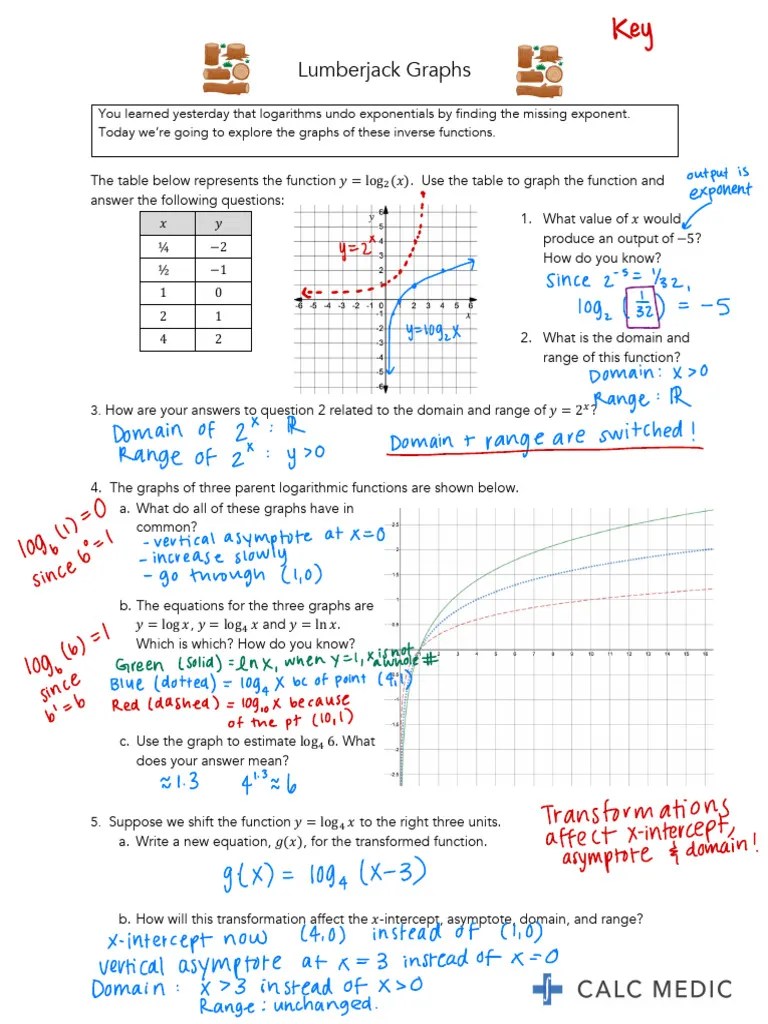 Key
Lumberjack Graphs
You learned yesterday that logarithms undo exponentials by finding the missing exponent.
Today we're going to explore the graphs of these inverse functions.
The table below represents the function y = log₂(x). Use the table to graph the function and
answer the following questions:
x y
¼ −2
½ −1
1 0
2 1
4 2
y
6
5
4
3
2
-6 -5 -4 -3 -2 -1 0 2 3 4 5 6
x
-1
-2
-3
-4
-5
-6
y=2ˣ
y=log₂x
output is
exponent
1. What value of x would
produce an output of −5?
How do you know?
Since 2⁻⁵ = 1/32,
log₂ (1/32) = −5
2. What is the domain and
range of this function?
Domain: x>0
Range: ℝ
3. How are your answers to question 2 related to the domain and range of y = 2ˣ?
Domain of 2ˣ: ℝ
Range of 2ˣ: y>0
Domain + range are switched!
4. The graphs of three parent logarithmic functions are shown below.
a. What do all of these graphs have in
common?
- vertical asymptote at x=0
- increase slowly
- go through (1,0)
log_b (1) = 0
since b⁰=1
b. The equations for the three graphs are
y = log x, y = log₄ x and y = ln x.
Which is which? How do you know?
Green (solid) = ln x, when y=1, x is not a whole #
Blue (dotted) = log₄ x bc of point (4,1)
Red (dashed) = log₁₀ x because
of the pt (10,1)
log_b (b) = 1
since
b¹=b
c. Use the graph to estimate log₄ 6. What
does your answer mean?
≈1.3 4^1.3 ≈ 6
2.5
2
1.5
1
0.5
2 3 4 5 6 7 8 9 10 11 12 13 14 15 16
-1
-1.5
-2
-2.5
5. Suppose we shift the function y = log₄ x to the right three units.
a. Write a new equation, g(x), for the transformed function.
g(x) = log₄ (x−3)
Transformations
affect x-intercept,
asymptote & domain!
b. How will this transformation affect the x-intercept, asymptote, domain, and range?
x-intercept now (4,0) instead of (1,0)
vertical asymptote at x=3 instead of x=0
Domain: x>3 instead of x>0
Range: unchanged.
CALC MEDIC